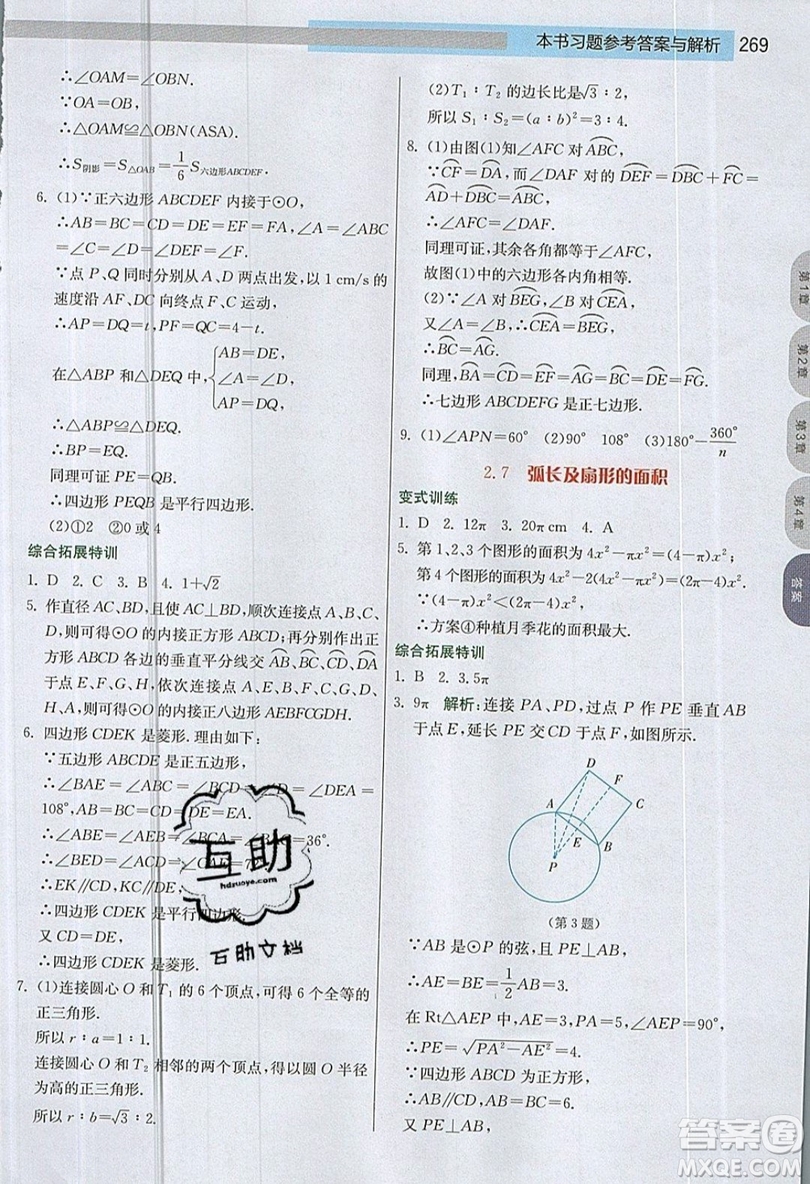 本书习题参考答案与解析 269
∴∠OAM=∠OBN.
∵OA=OB,
∴△OAM≌△OBN(ASA).
∴S阴影=S△OAB=1/6 S六边形ABCDEF.
6. (1)∵正六边形 ABCDEF 内接于⊙O,
∴AB=BC=CD=DE=EF=FA,∠A=∠ABC
=∠C=∠D=∠DEF=∠F.
∵点 P、Q 同时分别从 A、D 两点出发,以 1 cm/s 的
速度沿 AF、DC 向终点 F、C 运动,
∴AP=DQ=t,PF=QC=4-t.
在△ABP 和△DEQ 中,{AB=DE,
∠A=∠D,
AP=DQ,
∴△ABP≌△DEQ(SAS).
∴BP=EQ.
同理可证PE=QB.
∴四边形 PEQB 是平行四边形.
(2)①2 ②0 或 4
综合拓展特训
1. D 2. C 3. B 4. 1+√2
5. 作直径 AC、BD,且使 AC⊥BD,顺次连接点 A、B、C、
D,即可得⊙O 的内接正方形 ABCD;再分别作出正
方形 ABCD 各边的垂直平分线交 AB⌒、BC⌒、CD⌒、DA⌒
于点 E、F、G、H,依次连接点 A、E、B、F、C、G、D、
H、A,即可得⊙O 的内接正八边形 AEBFCGDH.
6. 四边形 CDEK 是菱形. 理由如下:
∵五边形 ABCDE 是正五边形,
∴∠BAE =∠ABC =∠BCD =∠CDE =∠DEA =
108°,AB=BC=CD=DE=EA.
∴∠ABE=∠AEB=∠BCA=∠BAC=36°.
∴∠BED=∠ACD=∠CAE=7
∴EK∥CD,KC∥DE.
∴四边形 CDEK 是平行四边形.
又 CD=DE,
∴四边形 CDEK 是菱形.
7. (1)连接圆心 O 和 T₁ 的 6 个顶点,可得 6 个全等的
正三角形.
所以 r∶a=1∶1.
连接圆心 O 和 T₂ 相邻的两个顶点,得以圆 O 半径
为高的正三角形.
所以 r∶b=√3∶2.
(2) T₁∶T₂ 的边长比是√3∶2,
所以 S₁∶S₂=(a∶b)²=3∶4.
8. (1)由图(1)知∠AFC 对ABC⌒,
∵CF⌒=DA⌒,而∠DAF 对的 DEF⌒=DBC⌒+FC⌒=
AD⌒+DBC⌒=ABC⌒,
∴∠AFC=∠DAF.
同理可证,其余各角都等于∠AFC,
故图(1)中的六边形各内角相等.
(2)∵∠A 对 BEG⌒,∠B 对 CEA⌒,
又∠A=∠B,∴CEA⌒=BEG⌒,
∴BC⌒=AG⌒.
同理,AB⌒=BC⌒=CD⌒=DE⌒=EF⌒=FG⌒=GA⌒.
∴七边形 ABCDEFG 是正七边形.
9. (1)∠APN=60° (2)90° 108° (3)180°-360°/n
2.7 弧长及扇形的面积
变式训练
1. D 2. 12π 3. 20π cm 4. A
5. 第 1、2、3 个图形的面积 4x²-πx²=(4-π)x²;
第 4 个图形的面积 4x²-2(π/4)x²=(4-π/2)x²;
∵(4-π)x²<(4-π/2)x²,
∴方案④种植月季花的面积最大.
综合拓展特训
1. B 2. 3.5π
3. 9π 解析:连接 PA、PD,过点 P 作 PE 垂直 AB
于点 E,延长 PE 交 CD 于点 F,如图所示.
D
F
A
C
E
B
P
(第 3 题)
∵AB 是⊙P 的弦,且 PE⊥AB,
∴AE=BE=1/2 AB=3.
在 Rt△AEP 中,AE=3,PA=5,∠AEP=90°,
∴PE=√(PA²-AE²)=4.
∵四边形 ABCD 为正方形,
∴AB=BC=6.
又 PE⊥AB,
第1章
第2章
第3章
第4章
答案
互助
hdzuoye.com
互助文档
答案圈
MXQE.COM